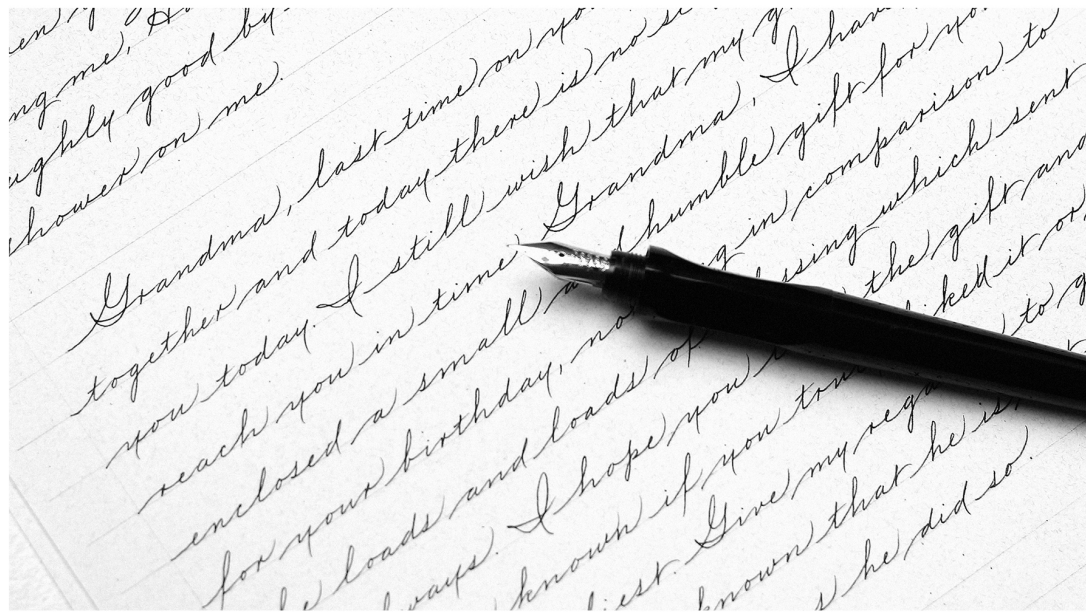 ng me, 
ghly good by
shower on me.
Grandma, last time on yo
together and today there is no s
you today. I still wish that my g
reach you in time Grandma, I hav
enclosed a small humble gift for yo
for your birthday, no g in comparison to
loads and loads of ssing which sent
ways. I hope you the gift and
known if you tru iked it or
est. Give my rega to g
known that he is
he did so.